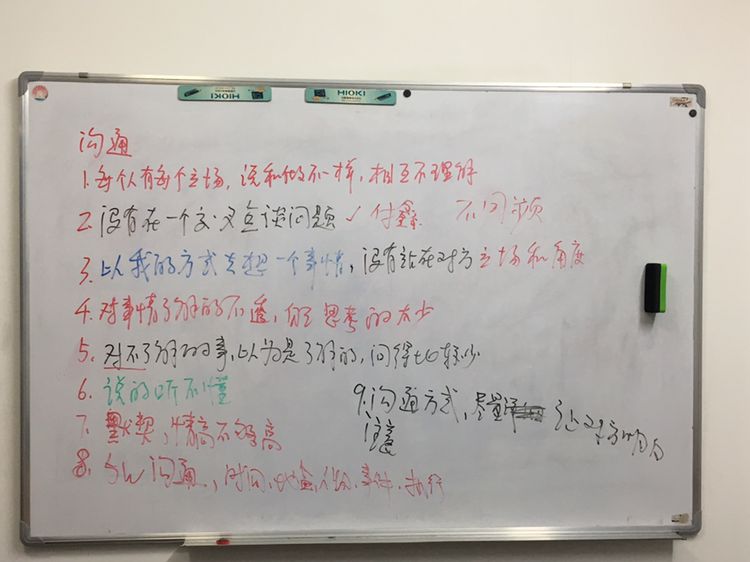 HIOKI
HIOKI
沟通
1.每个人有每个立场,说和做不一样,相互不理解
2.没有在一个交叉点谈问题✓付鑫 不同频
3.以我的方式去想一个事情,没有站在对方立场和角度
4.对事情了解的不透,自己思考的太少
5.对不了解的事,以为是了解的,问得比较少
6.说的听不懂
7.默契,情商不够高
8.5W沟通,时间、地点、人物、事件、执行
9.沟通方式,尽量 让对方明白
注意